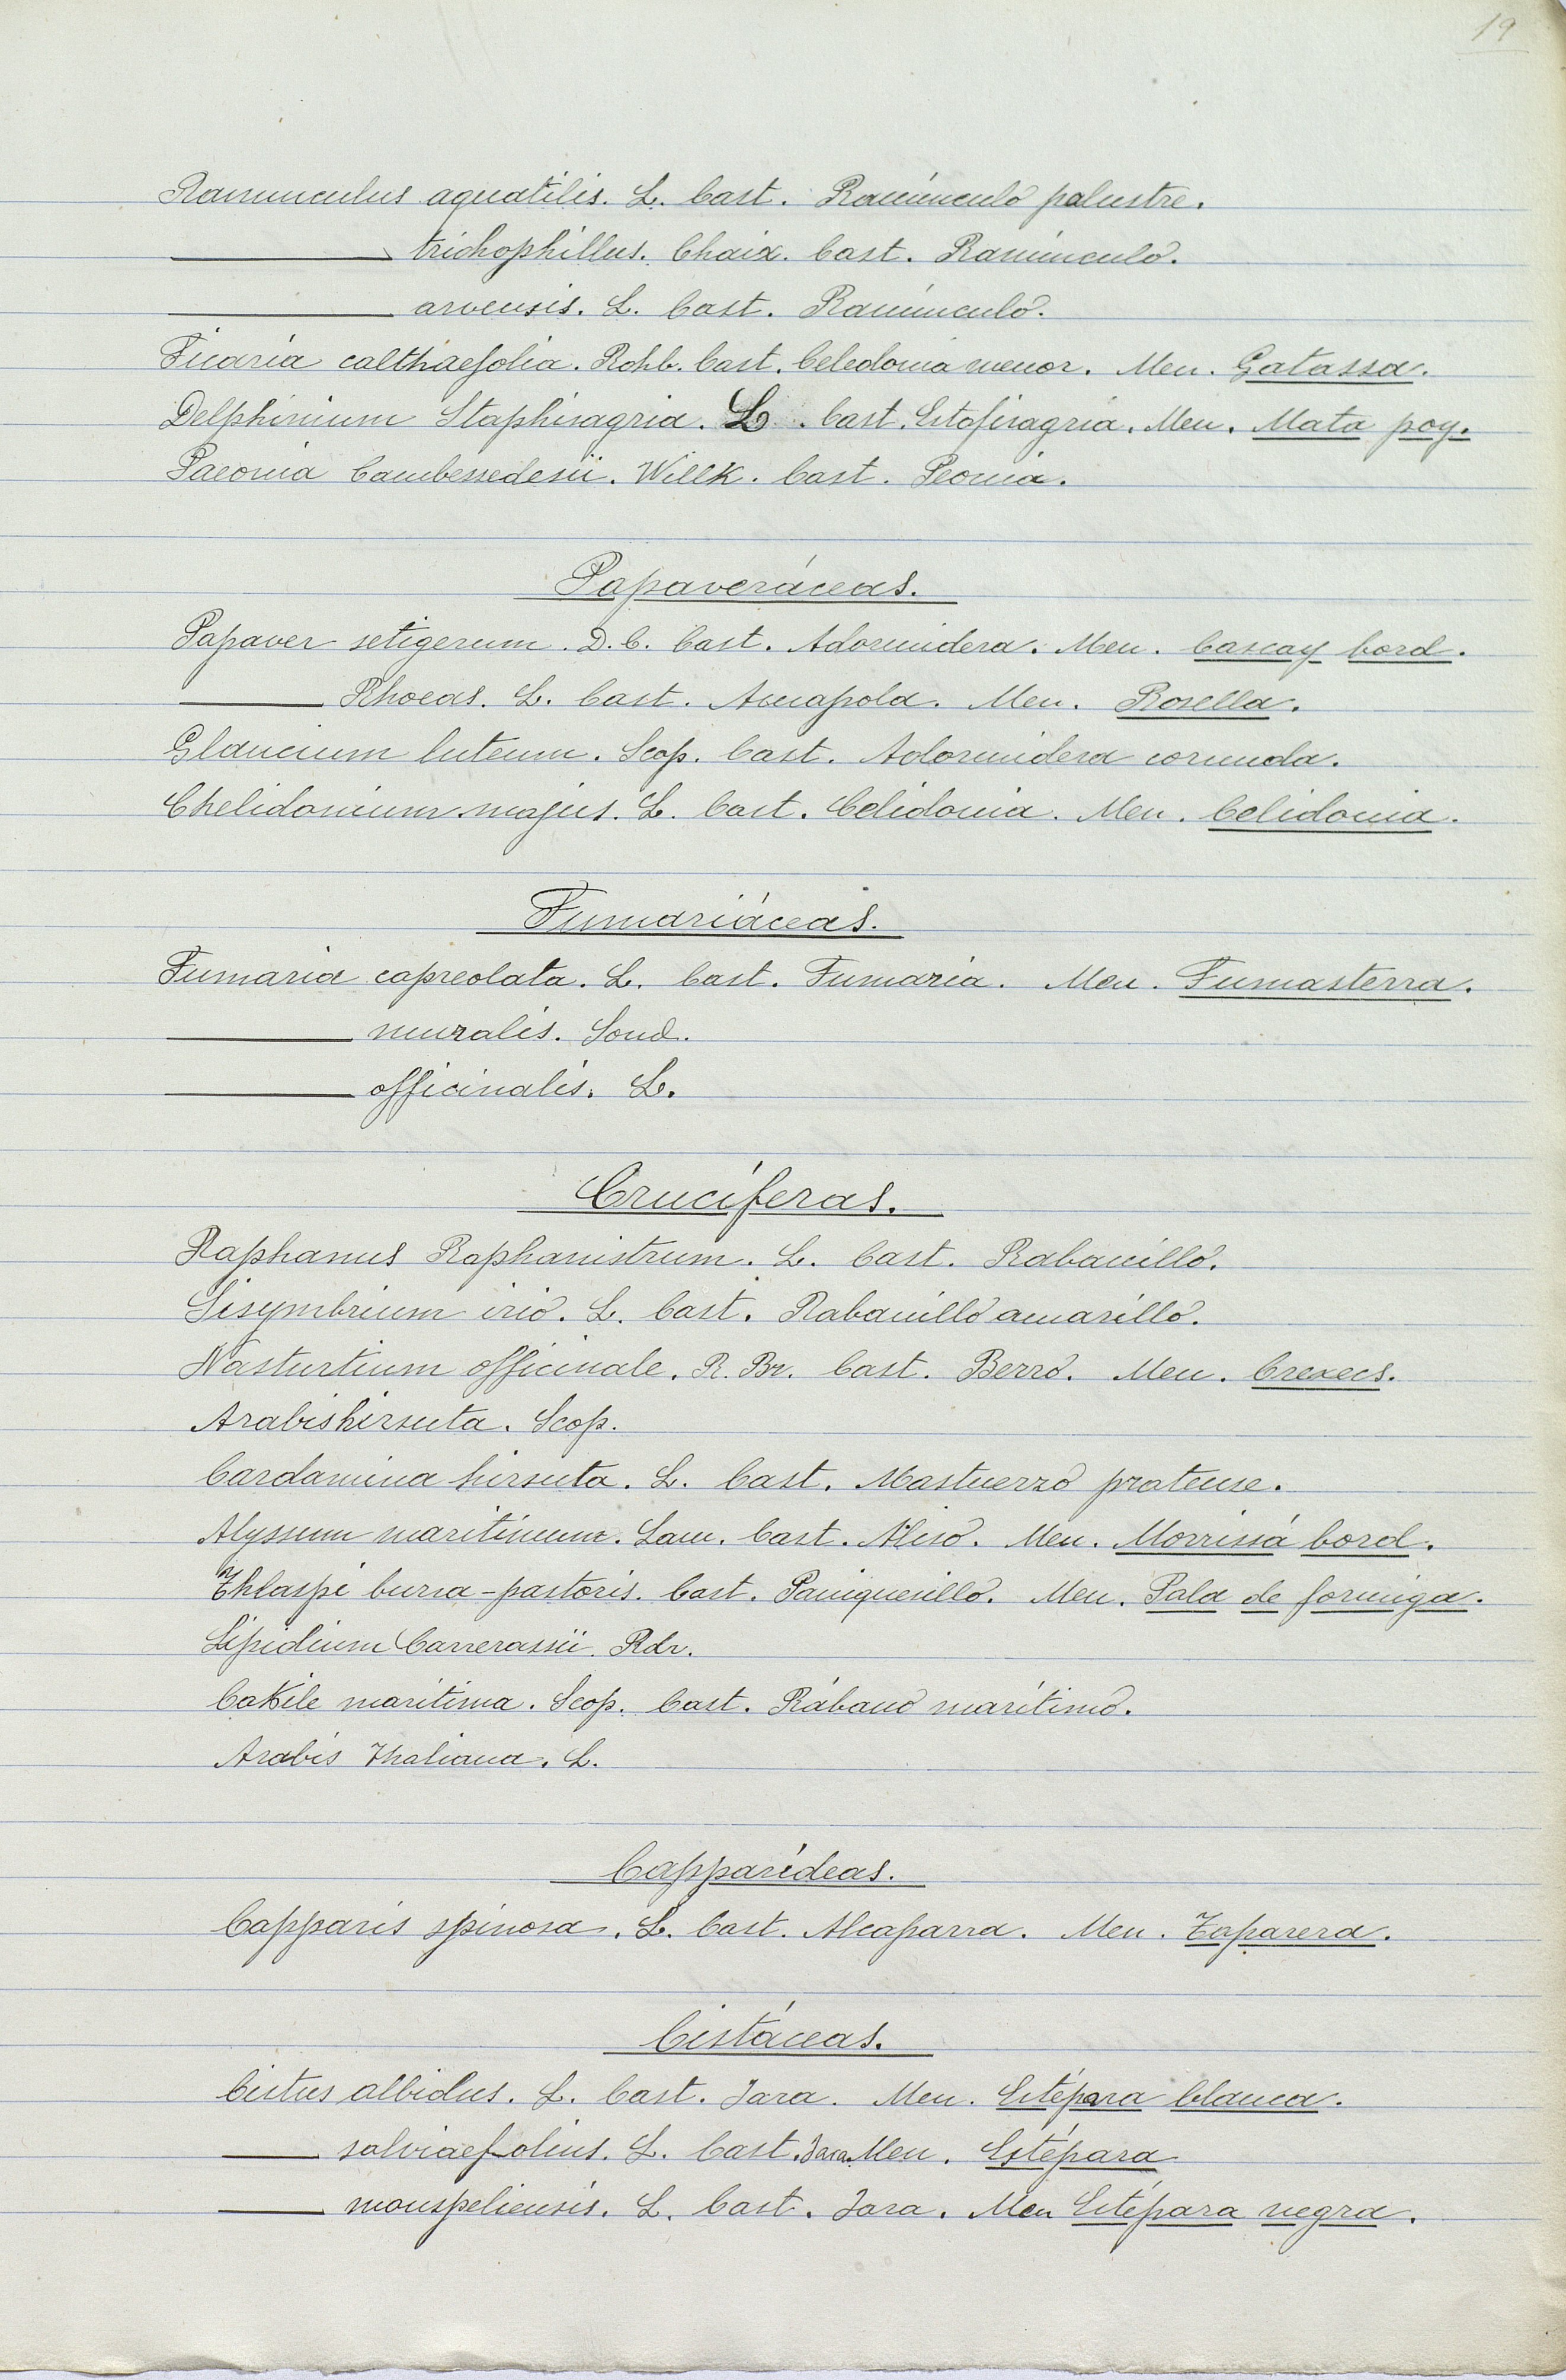 19
Ranunculus aquatilis. L. Cast. Ranúnculo palustre.
——— trichophillus. Chaix. Cast. Ranúnculo.
——— arvensis. L. Cast. Ranúnculo.
Ficaria calthaefolia. Rchb. Cast. Celedonia menor. Men. Gatassa.
Delphinium Staphisagria. L. Cast. Estafisagria. Men. Mata poy.
Paeonia Cambessedesii. Willk. Cast. Peonia.
Papaveráceas.
Papaver setigerum. D.C. Cast. Adormidera. Men. Cascay bord.
——— Rhoeas. L. Cast. Amapola. Men. Rosella.
Glaucium luteum. Scop. Cast. Adormidera cornuda.
Chelidonium majus. L. Cast. Celidonia. Men. Celidonia.
Fumariáceas.
Fumaria capreolata. L. Cast. Fumaria. Men. Fumasterra.
——— muralis. Sond.
——— officinalis. L.
Crucíferas.
Raphanus Raphanistrum. L. Cast. Rabanillo.
Sisymbrium irio. L. Cast. Rabanillo amarillo.
Nasturtium officinale. R. Br. Cast. Berro. Men. Crexecs.
Arabis hirsuta. Scop.
Cardamina hirsuta. L. Cast. Mastuerzo pratense.
Alyssum maritimum. Lam. Cast. Aliso. Men. Morrissá bord.
Thlaspi bursa-pastoris. Cast. Paniquesillo. Men. Pala de formiga.
Lipidium Carrerassii. Rdr.
Cakile maritima. Scop. Cast. Rábano marítimo.
Arabis Thaliana. L.
Capparídeas.
Capparis spinosa. L. Cast. Alcaparra. Men. Taparera.
Cistáceas.
Cistus albidus. L. Cast. Jara. Men. Estépara blanca.
——— salviaefolius. L. Cast. Jara. Men. Estépara
——— monspeliensis. L. Cast. Jara. Men Estépara negra.